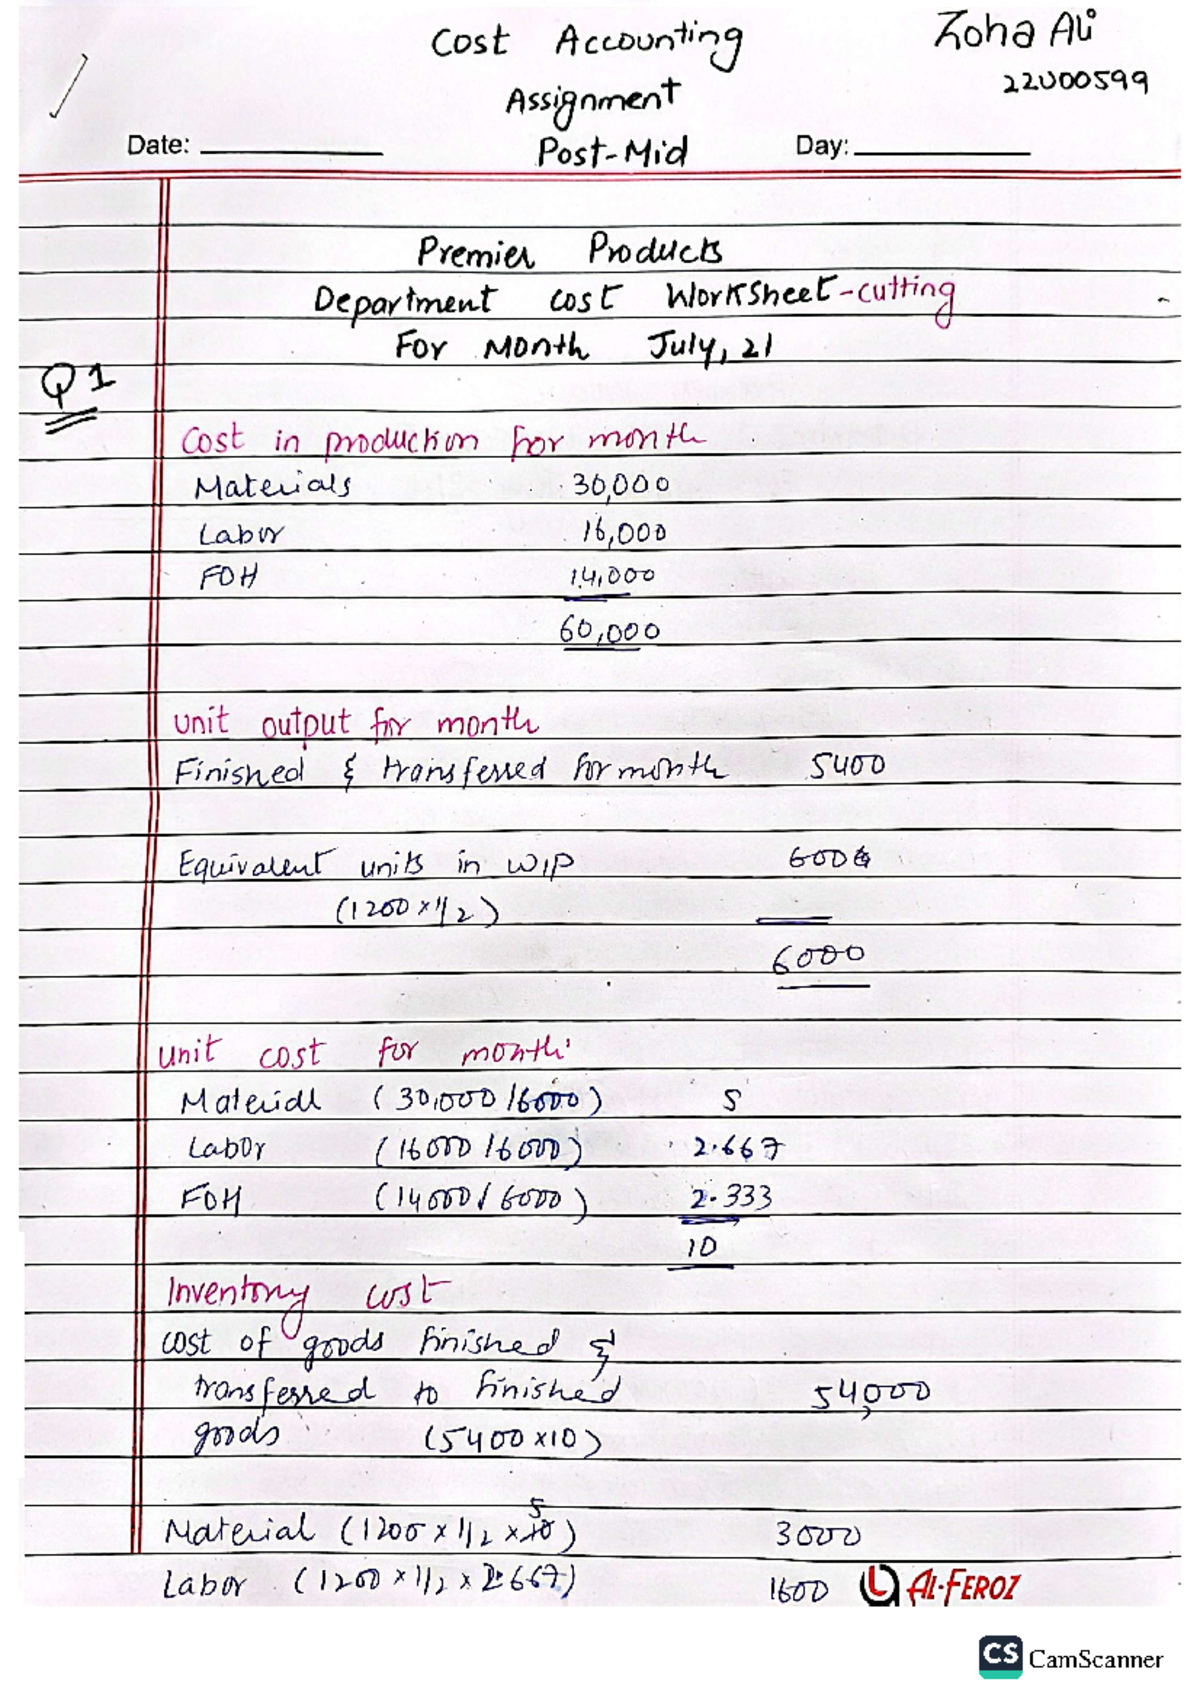 Cost Accounting
Zoha Ali
Assignment
22U00599
Date:
Post-Mid
Day:
Premier Products
Department cost Worksheet-cutting
For Month July, 21
Q1
Cost in production for month
Materials 30,000
Labor 16,000
FOH 14,000
60,000
unit output for month
Finished & transferred for month 5400
Equivalent units in WIP 600
(1200 × 1/2)
6000
unit cost for month:
Material (30,000/6000) 5
Labor (16000/6000) 2.667
FOH (14000/6000) 2.333
10
Inventory cost
cost of goods finished &
transferred to finished 54,000
goods (5400 × 10)
Material (1200 × 1/2 × 5) 3000
Labor (1200 × 1/2 × 2.667) 1600
AL-FEROZ
CS CamScanner